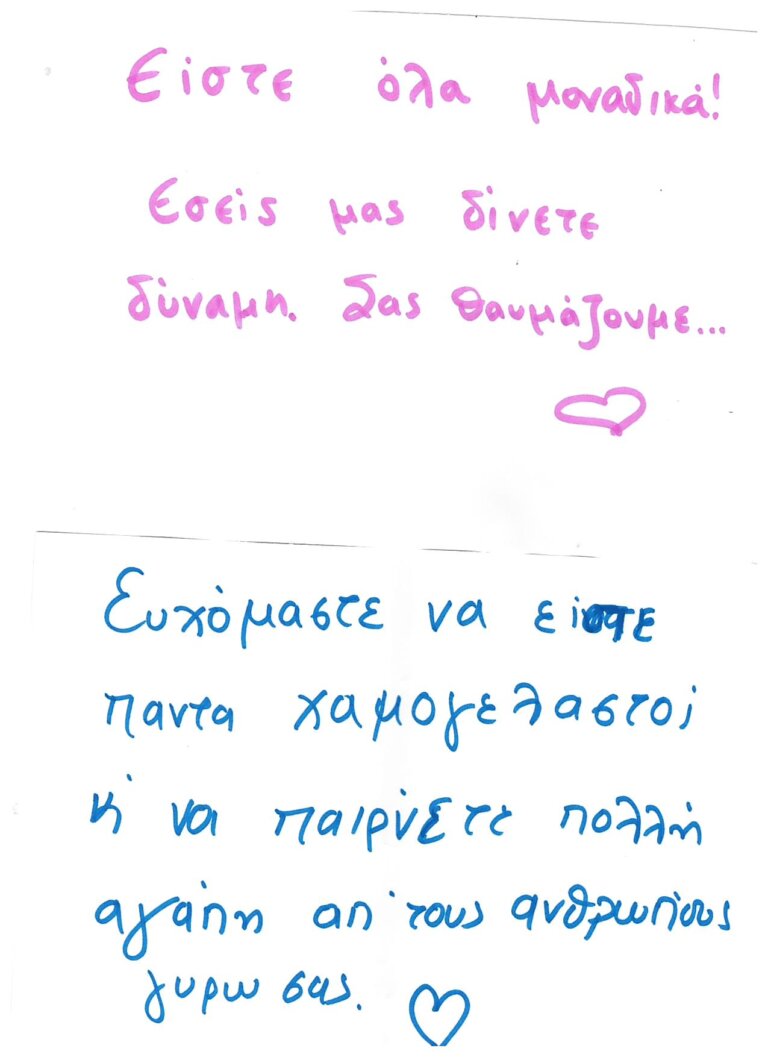 Είστε όλα μοναδικά!
Εσείς μας δίνετε
δύναμη. Σας θαυμάζουμε...
Ευχόμαστε να είστε
παντα χαμογελαστοί
κ' να παίρνετε πολλή
αγάπη απ' τους ανθρώπους
γυρω σας.